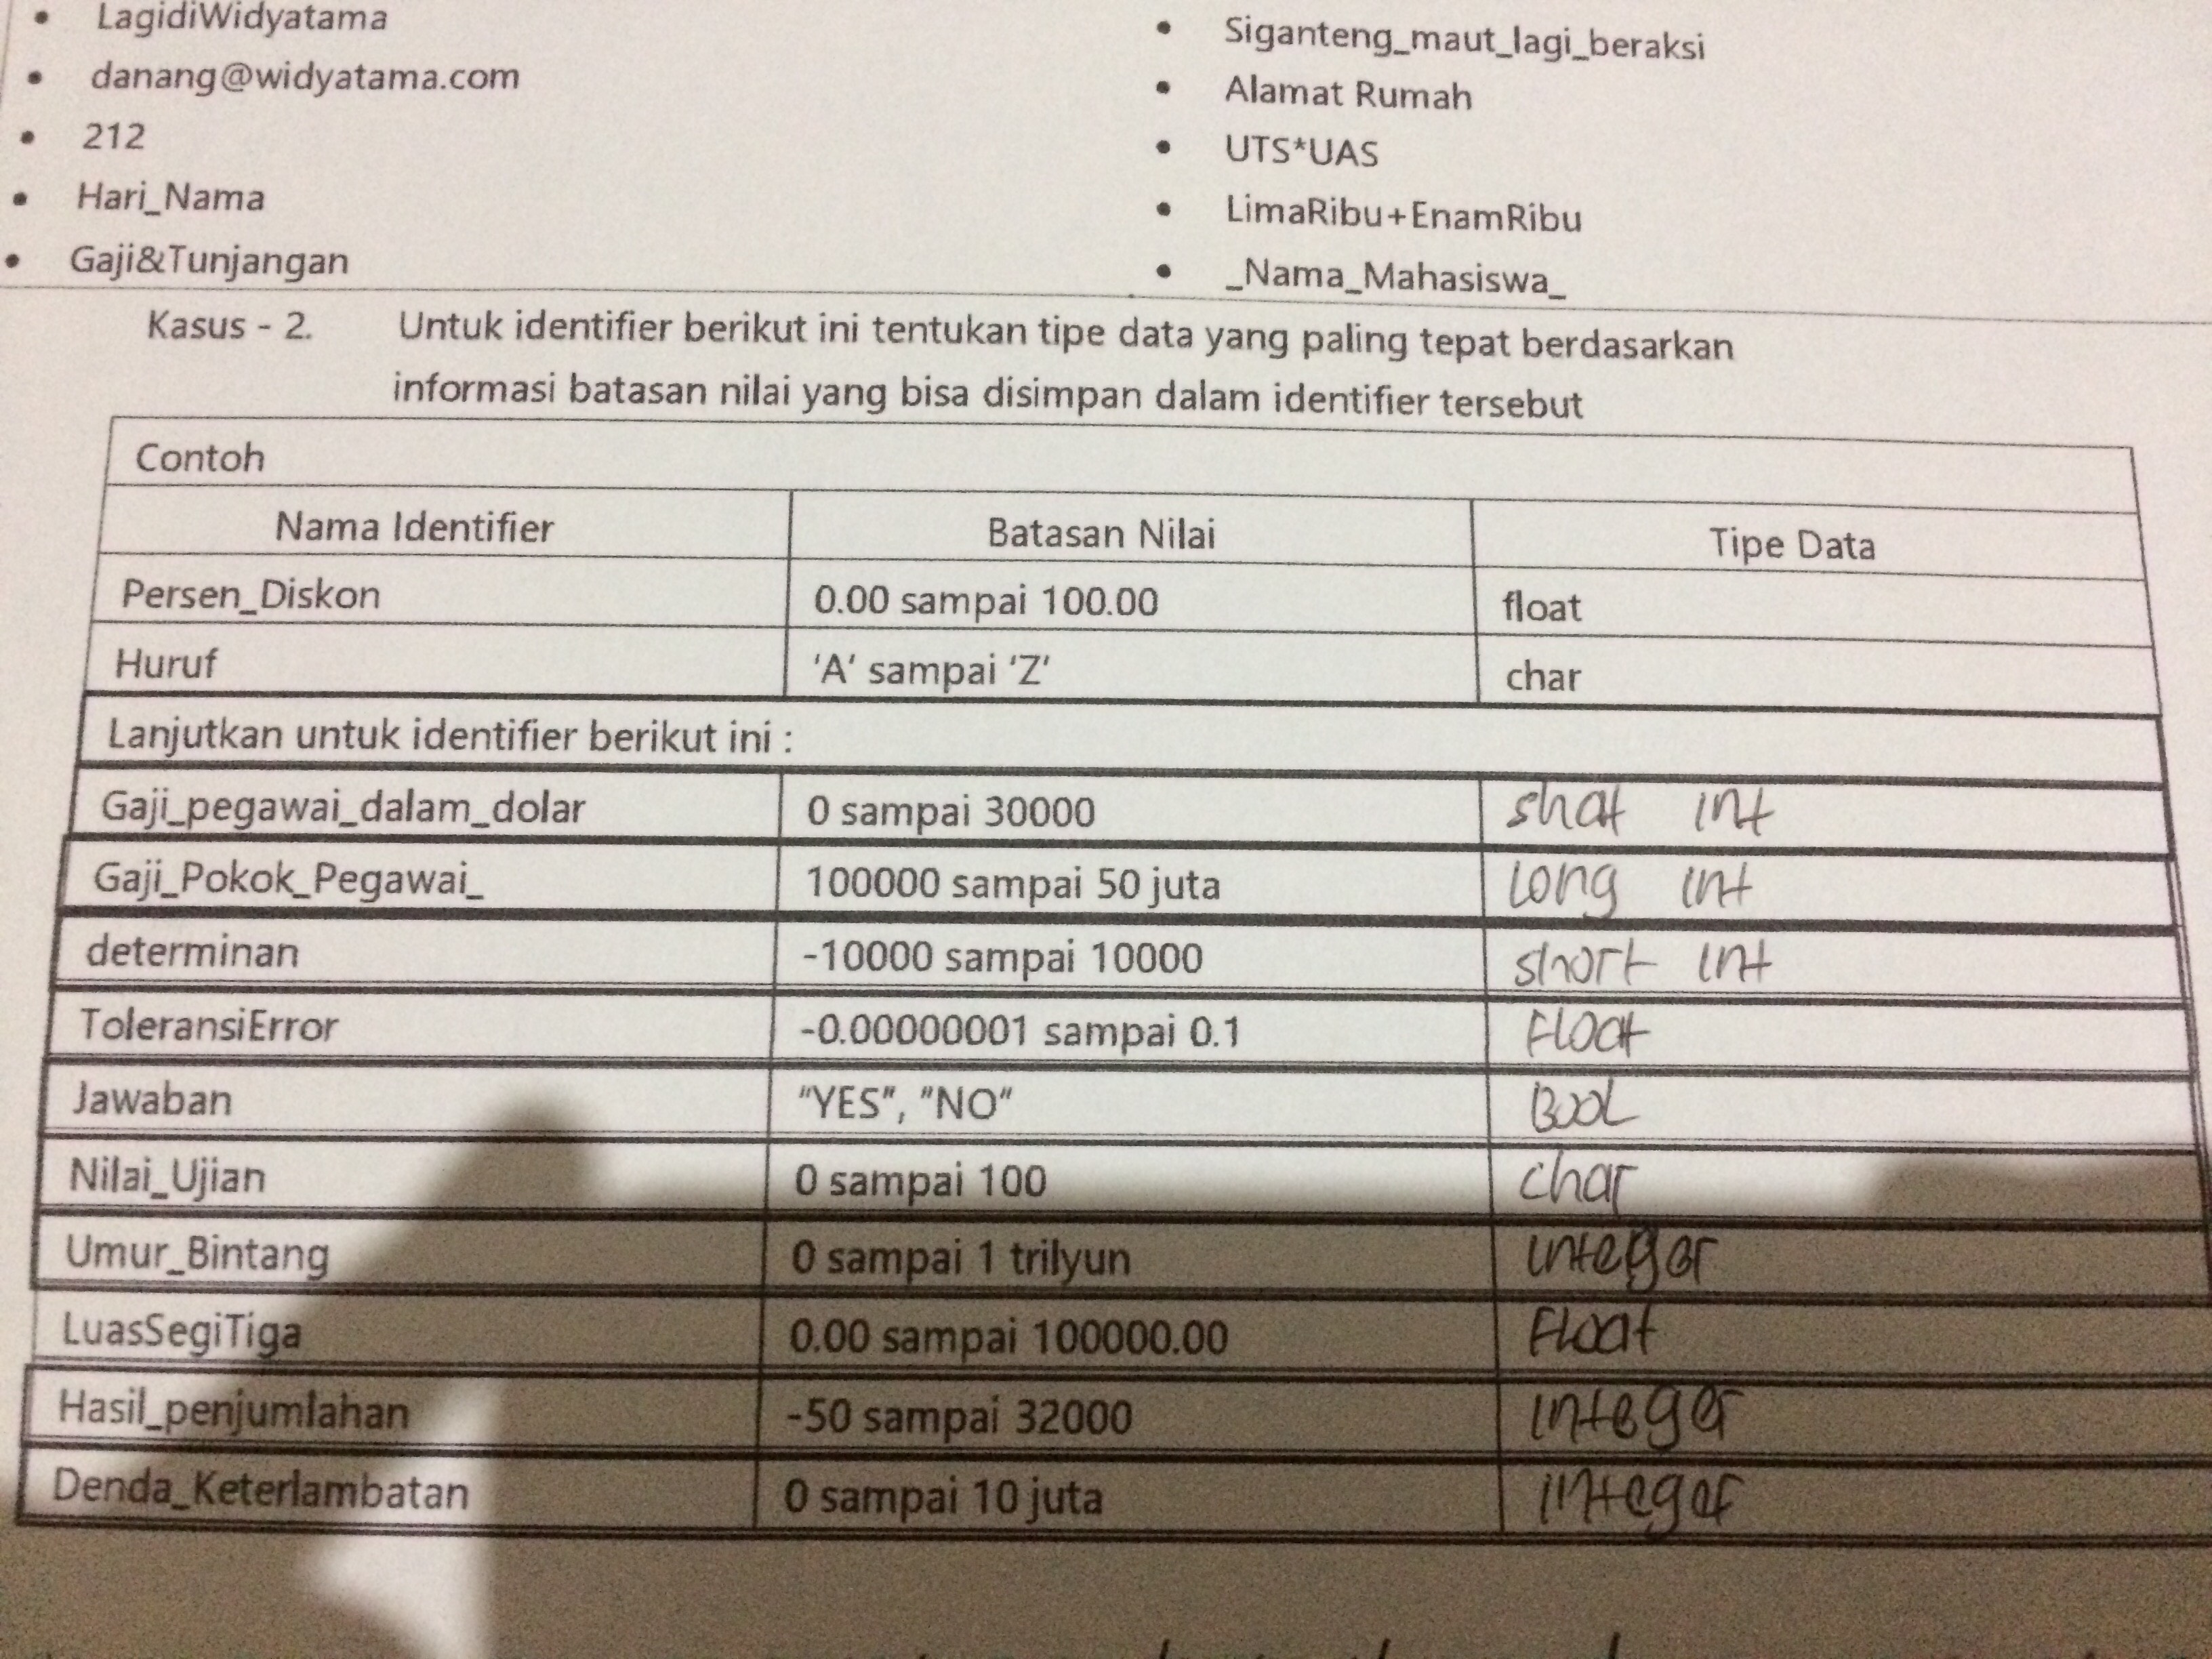 • LagidiWidyatama • Siganteng_maut_lagi_beraksi
• danang@widyatama.com • Alamat Rumah
• 212 • UTS*UAS
• Hari_Nama • LimaRibu+EnamRibu
• Gaji&Tunjangan • _Nama_Mahasiswa_
Kasus - 2. Untuk identifier berikut ini tentukan tipe data yang paling tepat berdasarkan
informasi batasan nilai yang bisa disimpan dalam identifier tersebut
Contoh
Nama Identifier Batasan Nilai Tipe Data
Persen_Diskon 0.00 sampai 100.00 float
Huruf 'A' sampai 'Z' char
Lanjutkan untuk identifier berikut ini :
Gaji_pegawai_dalam_dolar 0 sampai 30000 int
Gaji_Pokok_Pegawai_ 100000 sampai 50 juta long int
determinan -10000 sampai 10000 short int
ToleransiError -0.00000001 sampai 0.1 float
Jawaban "YES", "NO" Bool
Nilai_Ujian 0 sampai 100 char
Umur_Bintang 0 sampai 1 trilyun integer
LuasSegiTiga 0.00 sampai 10000.00 float
Hasil_penjumlahan -50 sampai 32000 integer
Denda_Keterlambatan 0 sampai 10 juta integer